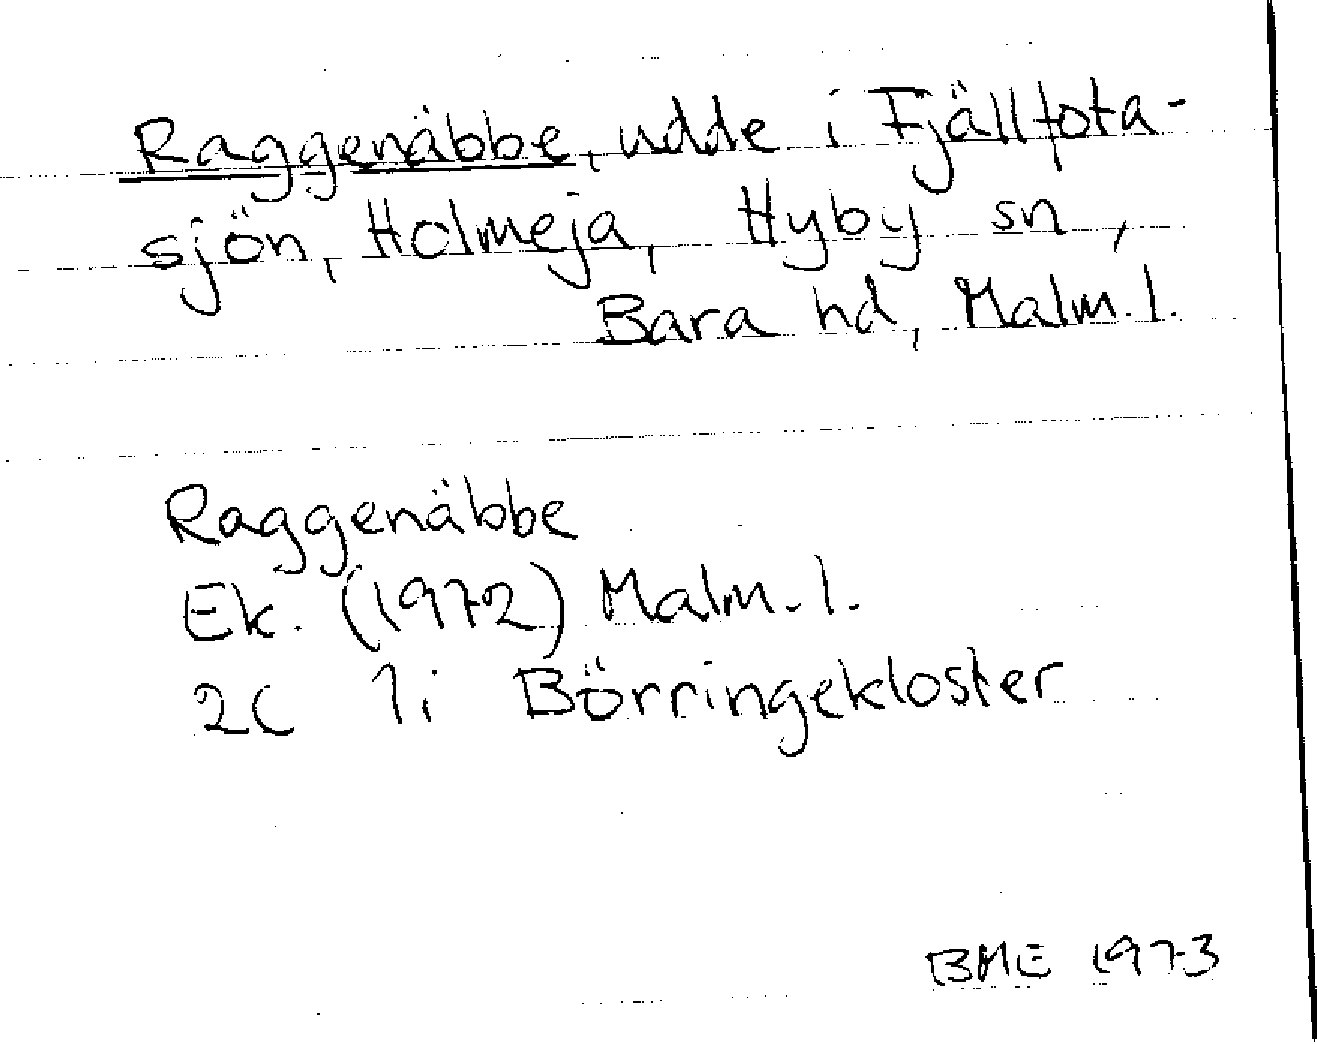 Raggenäbbe, udde i Fjällfota-
sjön, Holmeja, Hyby sn,
Bara hd, Malm.l.
Raggenäbbe
Ek. (1972) Malm.l.
2C 1i Börringekloster
BME 1973